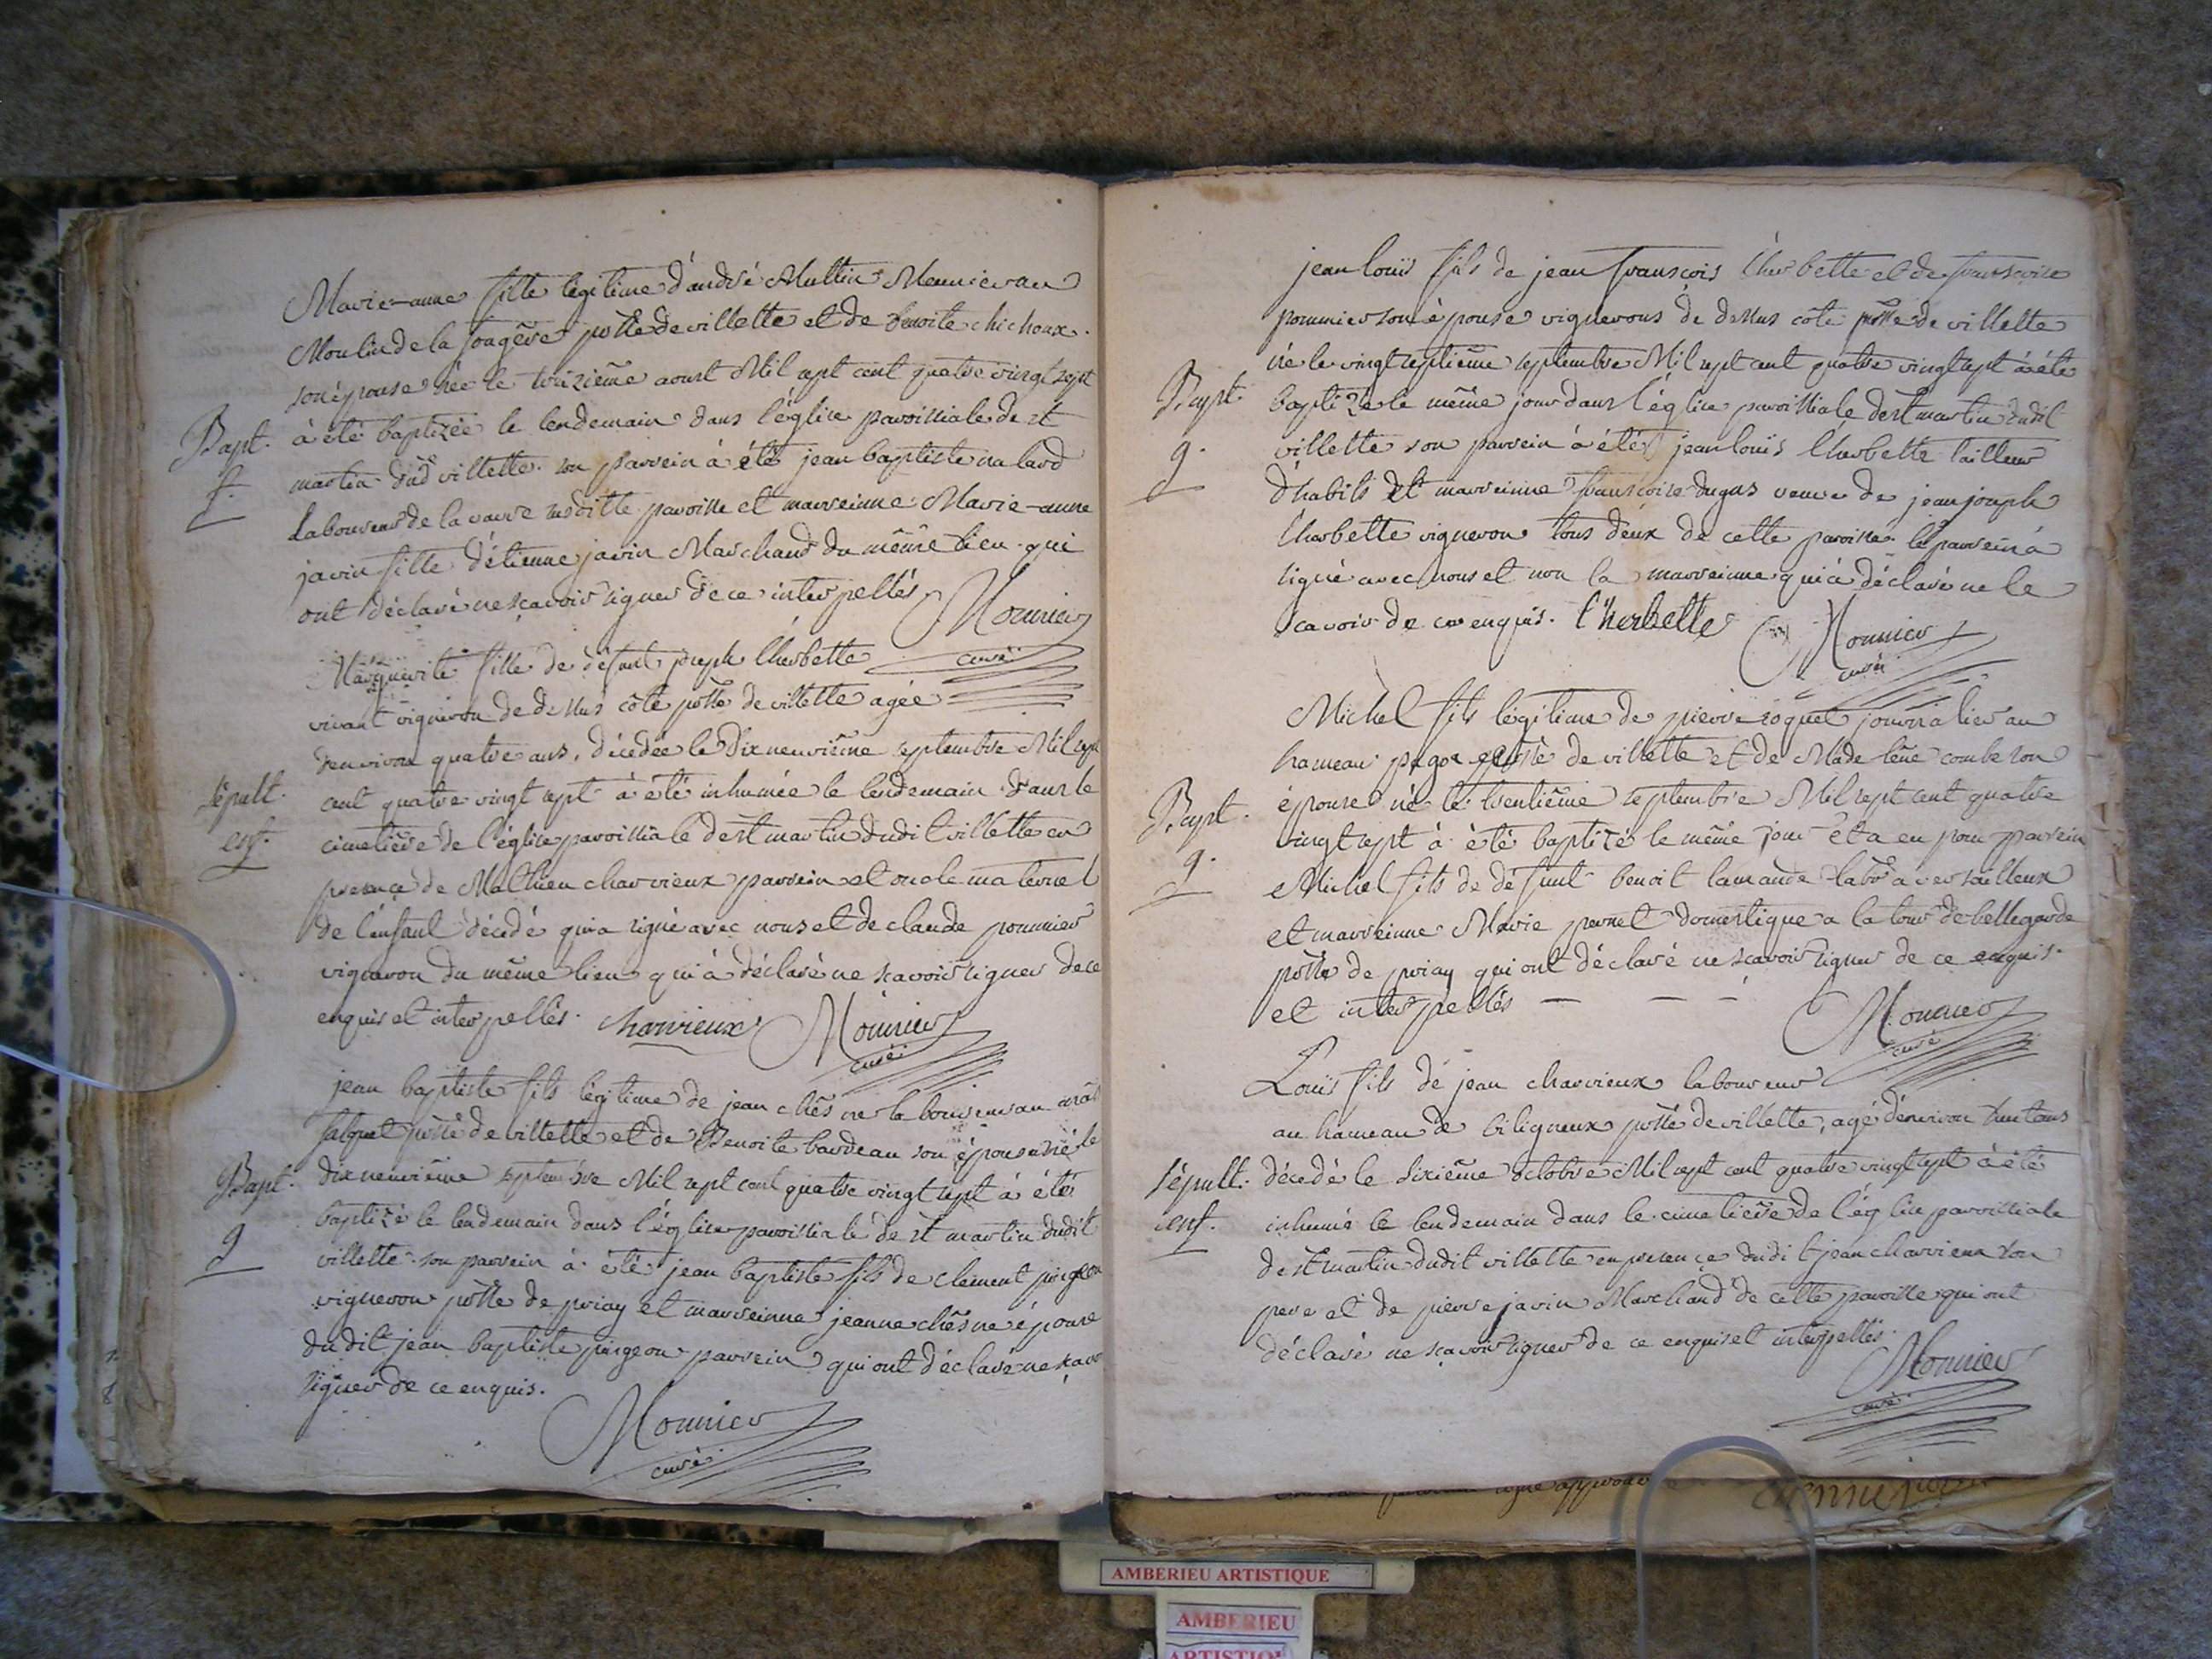 Marie-anne fille légitime d'andré Multin Meunier au
Moulin de la fougère psse de villette et de benoite chichoux
son épouse née le treizième aoust Mil sept cent quatre vingt sept
Bapt. à été baptizée le lendemain dans l'église paroissiale de st
f. martin dud villette. son parrein à été jean baptiste nalard
Laboureur de la vavre susditte paroisse et marreinne Marie-anne
javin fille d'étienne javin Marchand du même lieu qui
ont déclaré ne sçavoir signer de ce interpellés Monnier
curé
Marguerite fille de défunt joseph lherbette
vivant vigneron de dessus côte psse de villette agée
d'environ quatre ans, décédée le dix neuvième septembre Mil sept
Sépult. cent quatre vingt sept à été inhumée le lendemain dans le
enf. cimetière de l'église paroissiale de st martin dudit villette en
presence de Mathieu charvieux parrein et oncle maternel
de l'enfant décédé qui a signé avec nous et de claude pommier
vigneron du même lieu qui à déclaré ne sçavoir signer de ce
enquis et interpellés. charvieux Monnier
curé
jean baptiste fils légitime de jean chêsne laboureur au
psse de villette et de Benoite bardeau son épouse né le
Bapt. dix neuvième septembre Mil sept cent quatre vingt sept à été
baptizé le lendemain dans l'église paroissiale de st martin dudit
g villette. son parrein à été jean baptiste fils de clement pingeon
vigneron psse de priay et marreinne jeanne chêsne épouse
dudit jean baptiste pingeon parrein qui ont déclaré ne sçavoir
signer de ce enquis.
Monnier
curé
jean louis fils de jean franscois lherbette et de franscoise
pommier son épouse vignerons de dessus côte psse de villette
né le vingt septième septembre Mil sept cent quatre vingt sept à été
Bapt. baptizé le même jour dans l'église paroissiale de st martin dudit
g. villette son parrein à été jean louis lherbette tailleur
d'habits et marreinne franscoise dugas veuve de jean joseph
lherbette vigneron tous deux de cette paroisse. le parrein a
signé avec nous et non la marreinne qui à déclaré ne le
scavoir de ce enquis. l'herbette Monnier
curé
Michel fils légitime de pierre roquet journalier au
hameau psse de villette et de Madeleine combe son
épouse né le trentième septembre Mil sept cent quatre
Bapt. vingt sept à été baptizé le même jour et a eu pour parrein
g. Michel fils de défunt benoit lamande labr a versailleux
et marreinne Marie pernet domestique a la tour de bellegarde
psse de priay qui ont déclaré ne sçavoir signer de ce enquis.
et interpellés — — — Monnier
curé
Louis fils de jean charvieux laboureur
au hameau de biligneux psse de villette, agé d'environ huit ans
Sépult. décédé le sixième octobre Mil sept cent quatre vingt sept à été
enf. inhumé le lendemain dans le cimetière de l'église paroissiale
de st martin dudit villette en presence dudit jean charvieux son
pere et de pierre javin Marchand de cette paroisse qui ont
déclaré ne sçavoir signer de ce enquis et interpellés.
Monnier
curé
signe approuvé
AMBERIEU ARTISTIQUE
AMBERIEU
ARTISTIQUE